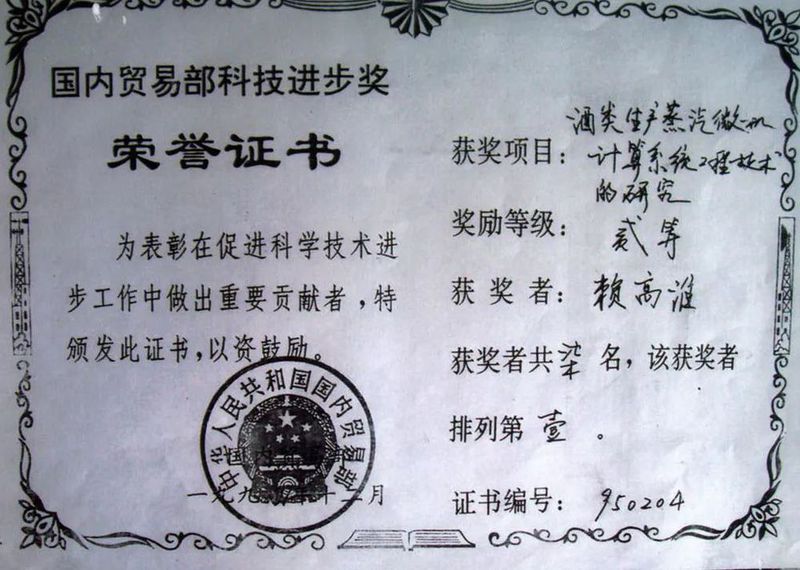 国内贸易部科技进步奖
荣誉证书
为表彰在促进科学技术进
步工作中做出重要贡献者，特
颁发此证书，以资鼓励。
中华人民共和国国内贸易部
年十二月
获奖项目：酒类生产蒸汽微机
计算系统工程技术
的研究
奖励等级：贰等
获奖者：赖高淮
获奖者共柒名，该获奖者
排列第壹。
证书编号：950204